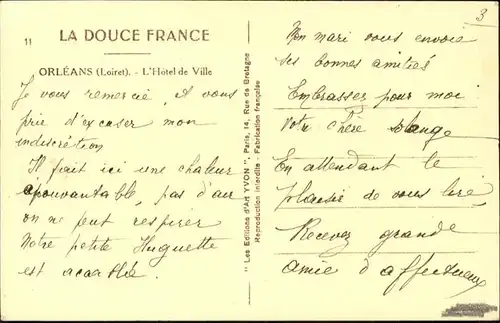 11
LA DOUCE FRANCE
ORLÉANS (Loiret). - L'Hôtel de Ville
Je vous remercie, & vous
prie d'excuser mon
indiscrétion
Il fait ici une chaleur
épouvantable, pas d'air
on ne peut respirer
Notre petite Huguette
est acablé
" Les Editions d'Art YVON ", Paris, 14, Rue de Bretagne
Reproduction interdite - Fabrication française
3
Mon mari vous envoie
ses bonnes amitiés
Embrassez pour moi
votre chère Solange
En attendant le
plaisir de vous lire,
Recevez grande
amie d'affectueux